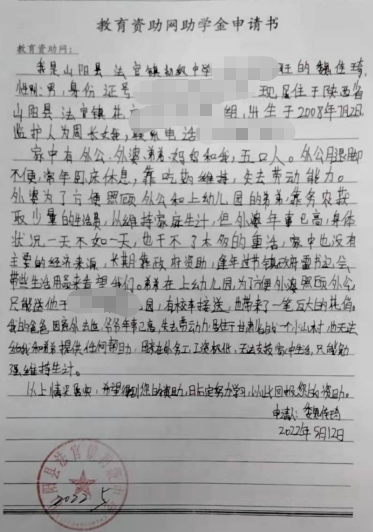 教育资助网助学金申请书
教育资助网：
我是山阳县法官镇初级中学 班的魏佳琦,
性别:男,身份证号 现居住于陕西省
山阳县法官镇 组,出生于2008年7月2日,
监护人为周长女, 联系电话
家中有外公、外婆、弟弟、妈妈和我,五口人。外公因腿脚
不便,常年卧床休息,靠吃药维持,失去劳动能力。
外婆为了方便照顾外公和上幼儿园的弟弟,靠务农获
取少量的生活费,以维持家庭生计,但外婆年事已高,身体
状况一天不如一天,也干不了太多的重活,家中也没有
主要的经济来源,长期靠政府资助,逢年过节镇政府
带些生活用品来看望我们。弟弟在上幼儿园,为了方便外婆照顾外公
只能送他于 园,有校车接送,也带来了一笔巨大的花销。
我的爸爸因意外去世,爷爷年事已高,失去劳动力,居住于 一个小山村,也无法
给我和弟弟提供任何帮助, 在外务工,工资较低,无法支撑家中生活,只能勉
强维持生计。
以上情况属实,希望得到您的资助,日后定努力学习,以此回报您的资助。
申请人:魏佳琦
2022年5月12日
2022 5